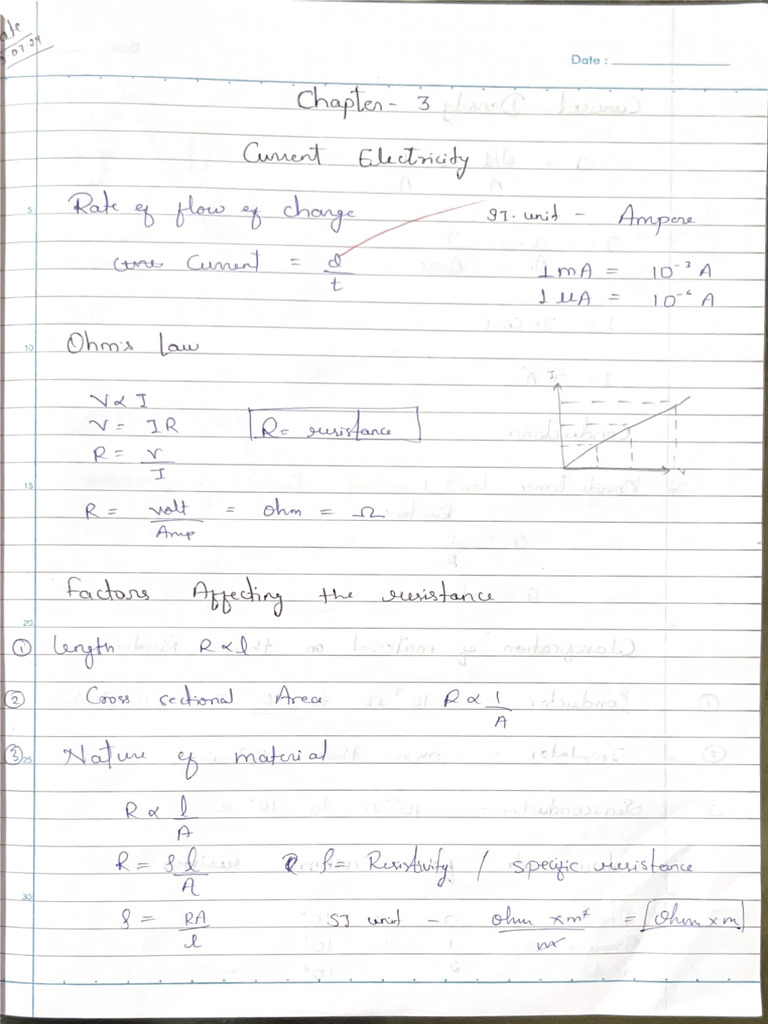 Date :
Chapter - 3
Current Electricity
5 Rate of flow of charge SI. unit - Ampere
Current = Q/t 1 mA = 10⁻³ A
1 μA = 10⁻⁶ A
10 Ohm's Law
V ∝ I
V = IR R = resistance
R = V/I
15
R = volt/Amp = ohm = Ω
I
V
Factors Affecting the resistance
20
① length R ∝ l
② Cross sectional Area R ∝ 1/A
③ 25 Nature of material
R ∝ l/A
R = ρ l/A ρ = Resistivity / specific resistance
30
ρ = RA/l SI unit - ohm × m²/m = ohm × m